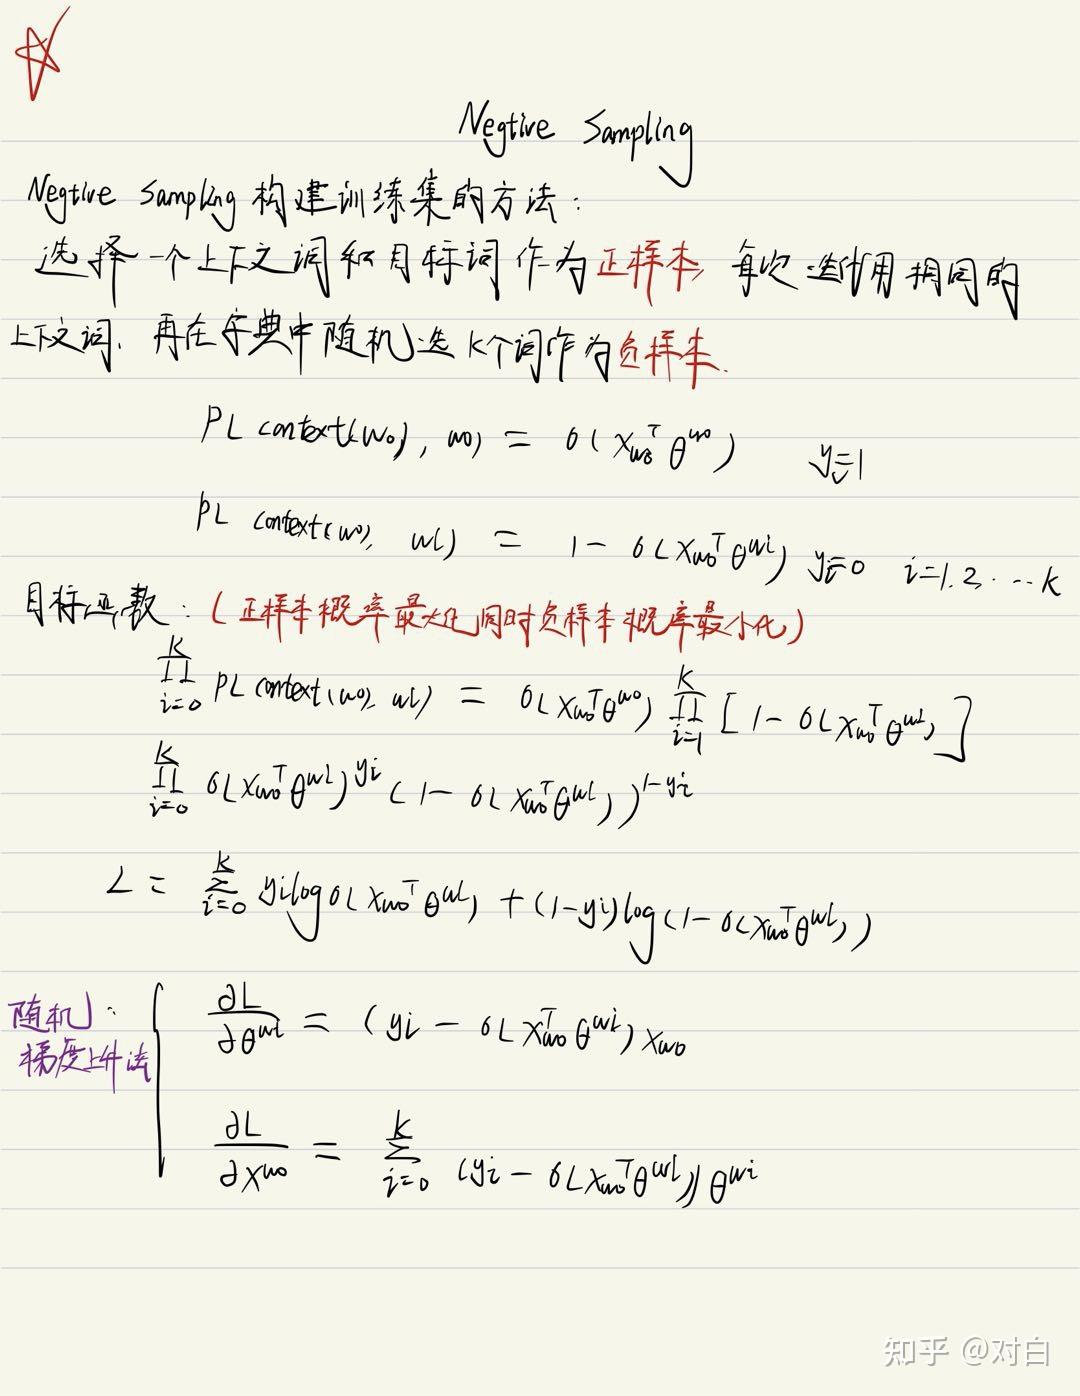 Negtive Sampling
Negtive Sampling 构建训练集的方法:
选择一个上下文词和目标词作为正样本, 每次迭代用相同的
上下文词, 再在字典中随机选K个词作为负样本.
P(context(w₀), w₀) = σ(x_{w₀}^T θ^{w₀}) yᵢ=1
P(context(w₀), wᵢ) = 1 - σ(x_{w₀}^T θ^{wᵢ}) yᵢ=0 i=1,2,...k
目标函数: (正样本概率最大化同时负样本概率最小化)
∏_{i=0}^{K} P(context(w₀), wᵢ) = σ(x_{w₀}^T θ^{w₀}) ∏_{i=1}^{K} [1 - σ(x_{w₀}^T θ^{wᵢ})]
∏_{i=0}^{K} σ(x_{w₀}^T θ^{wᵢ})^{yᵢ} (1 - σ(x_{w₀}^T θ^{wᵢ}))^{1-yᵢ}
L = ∑_{i=0}^{K} yᵢ log σ(x_{w₀}^T θ^{wᵢ}) + (1-yᵢ) log(1 - σ(x_{w₀}^T θ^{wᵢ}))
随机:
梯度上升法
∂L/∂θ^{wᵢ} = (yᵢ - σ(x_{w₀}^T θ^{wᵢ})) x_{w₀}
∂L/∂x^{w₀} = ∑_{i=0}^{K} (yᵢ - σ(x_{w₀}^T θ^{wᵢ})) θ^{wᵢ}
知乎 @对白